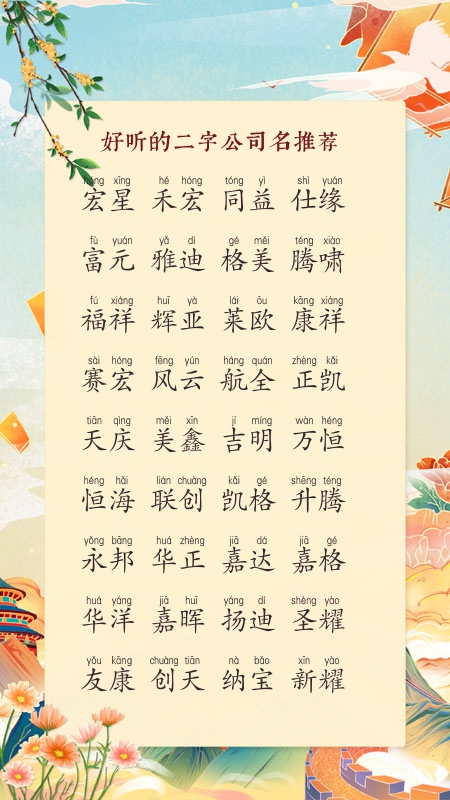 好听的二字公司名推荐
hóng xīng hé hóng tóng yì shì yuán
宏星 禾宏 同益 仕缘
fù yuán yǎ dí gé měi téng xiào
富元 雅迪 格美 腾啸
fú xiáng huī yà lái ōu kāng xiáng
福祥 辉亚 莱欧 康祥
sài hóng fēng yún háng quán zhèng kǎi
赛宏 风云 航全 正凯
tiān qìng měi xīn jí míng wàn héng
天庆 美鑫 吉明 万恒
héng hǎi lián chuàng kǎi gé shēng téng
恒海 联创 凯格 升腾
yǒng bāng huá zhèng jiā dá jiā gé
永邦 华正 嘉达 嘉格
huá yáng jiā huī yáng dí shèng yào
华洋 嘉晖 扬迪 圣耀
yǒu kāng chuàng tiān nà bǎo xīn yào
友康 创天 纳宝 新耀